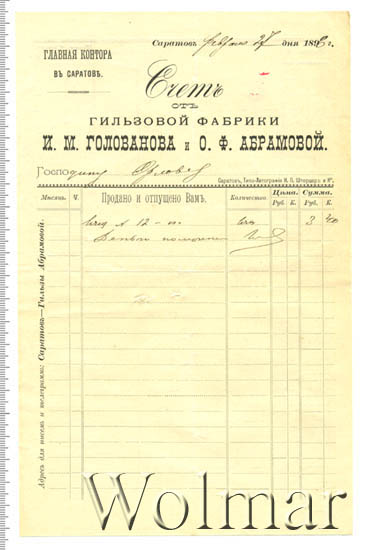 Саратовъ, февраля 27 дня 189 г.
ГЛАВНАЯ КОНТОРА
ВЪ САРАТОВѢ.
Счетъ
ОТЪ
ГИЛЬЗОВОЙ ФАБРИКИ
И. М. ГОЛОВАНОВА и О. Ф. АБРАМОВОЙ.
Господину Орлову
Саратовъ, Типо-Литографія И. П. Штерцеръ и Кº.
Мѣсяцъ. Ч. Продано и отпущено Вамъ. Количество Цѣна. Сумма.
Руб. К. Руб. К.
12 3 40
Деньги получилъ
Адресъ для писемъ и телеграммъ: Саратовъ—Гильзы Абрамовой.
Wolmar